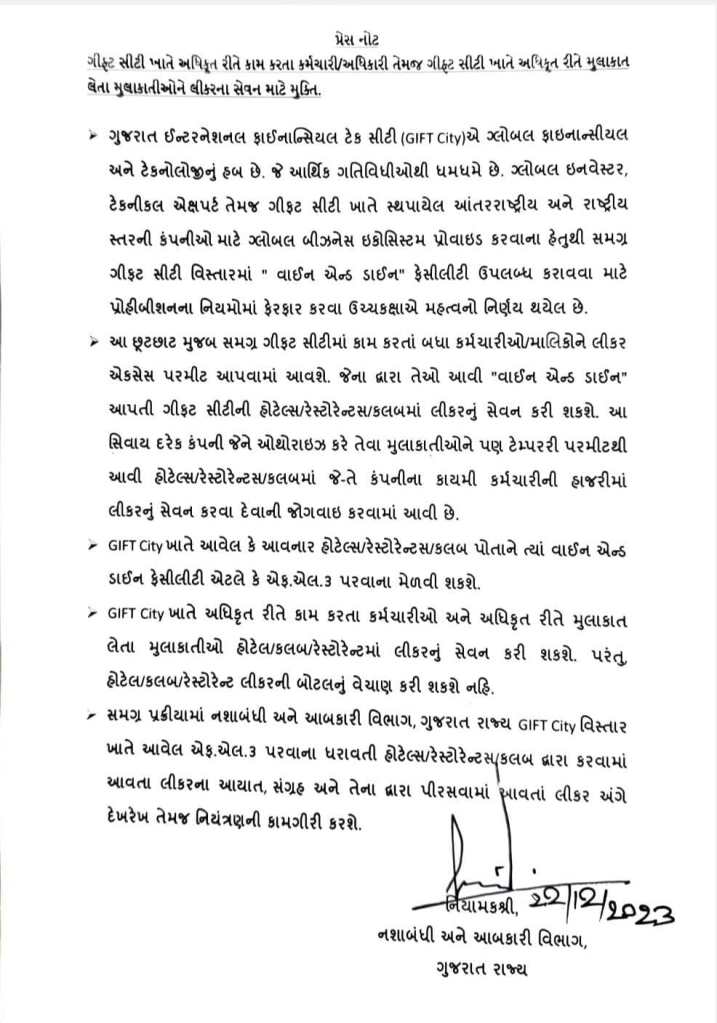 પ્રેસ નોટ
ગીફ્ટ સીટી ખાતે અધિકૃત રીતે કામ કરતા કર્મચારી/અધિકારી તેમજ ગીફ્ટ સીટી ખાતે અધિકૃત રીતે મુલાકાત
લેતા મુલાકાતીઓને લીકરના સેવન માટે મુક્તિ.
➢ ગુજરાત ઈન્ટરનેશનલ ફાઈનાન્સિયલ ટેક સીટી (GIFT City)એ ગ્લોબલ ફાઇનાન્સીયલ
અને ટેકનોલોજીનું હબ છે. જે આર્થિક ગતિવિધીઓથી ધમધમે છે. ગ્લોબલ ઇનવેસ્ટર,
ટેકનીકલ એક્ષપર્ટ તેમજ ગીફ્ટ સીટી ખાતે સ્થપાયેલ આંતરરાષ્ટ્રીય અને રાષ્ટ્રીય
સ્તરની કંપનીઓ માટે ગ્લોબલ બીઝનેસ ઇકોસિસ્ટમ પ્રોવાઇડ કરવાના હેતુથી સમગ્ર
ગીફ્ટ સીટી વિસ્તારમાં " વાઈન એન્ડ ડાઈન" ફેસીલીટી ઉપલબ્ધ કરાવવા માટે
પ્રોહીબીશનના નિયમોમાં ફેરફાર કરવા ઉચ્ચકક્ષાએ મહત્વનો નિર્ણય થયેલ છે.
➢ આ છૂટછાટ મુજબ સમગ્ર ગીફ્ટ સીટીમાં કામ કરતાં બધા કર્મચારીઓ/માલિકોને લીકર
એકસેસ પરમીટ આપવામાં આવશે. જેના દ્વારા તેઓ આવી "વાઈન એન્ડ ડાઈન"
આપતી ગીફ્ટ સીટીની હોટેલ્સ/રેસ્ટોરેન્ટસ/કલબમાં લીકરનું સેવન કરી શકશે. આ
સિવાય દરેક કંપની જેને ઓથોરાઇઝ કરે તેવા મુલાકાતીઓને પણ ટેમ્પરરી પરમીટથી
આવી હોટેલ્સ/રેસ્ટોરેન્ટસ/કલબમાં જે-તે કંપનીના કાયમી કર્મચારીની હાજરીમાં
લીકરનું સેવન કરવા દેવાની જોગવાઇ કરવામાં આવી છે.
➢ GIFT City ખાતે આવેલ કે આવનાર હોટેલ્સ/રેસ્ટોરેન્ટસ/કલબ પોતાને ત્યાં વાઈન એન્ડ
ડાઈન ફેસીલીટી એટલે કે એફ.એલ.૩ પરવાના મેળવી શકશે.
➢ GIFT City ખાતે અધિકૃત રીતે કામ કરતા કર્મચારીઓ અને અધિકૃત રીતે મુલાકાત
લેતા મુલાકાતીઓ હોટેલ/કલબ/રેસ્ટોરેન્ટમાં લીકરનું સેવન કરી શકશે. પરંતુ,
હોટેલ/કલબ/રેસ્ટોરેન્ટ લીકરની બોટલનું વેચાણ કરી શકશે નહિ.
➢ સમગ્ર પ્રકીયામાં નશાબંધી અને આબકારી વિભાગ, ગુજરાત રાજ્ય GIFT City વિસ્તાર
ખાતે આવેલ એફ.એલ.૩ પરવાના ધરાવતી હોટેલ્સ/રેસ્ટોરેન્ટસ/કલબ દ્વારા કરવામાં
આવતા લીકરના આયાત, સંગ્રહ અને તેના દ્વારા પીરસવામાં આવતાં લીકર અંગે
દેખરેખ તેમજ નિયંત્રણની કામગીરી કરશે.
નિયામકશ્રી, 22/12/2023
નશાબંધી અને આબકારી વિભાગ,
ગુજરાત રાજ્ય